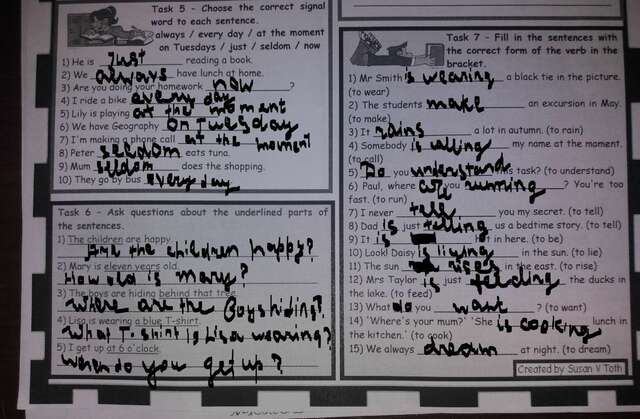 Task 5 - Choose the correct signal
word to each sentence.
always / every day / at the moment
on Tuesdays / just / seldom / now
1) He is just reading a book.
2) We always have lunch at home.
3) Are you doing your homework now ?
4) I ride a bike every day
5) Lily is playing at the moment
6) We have Geography on Tuesday
7) I'm making a phone call at the moment
8) Peter seldom eats tuna.
9) Mum seldom does the shopping.
10) They go by bus every day
Task 6 - Ask questions about the underlined parts of
the sentences.
1) The children are happy.
Are the children happy?
2) Mary is eleven years old.
How old is mary?
3) The boys are hiding behind that tree.
where are the Boys hiding?
4) Lisa is wearing a blue T-shirt.
what T-shirt is Lisa wearing?
5) I get up at 6 o'clock.
when do you get up?
Task 7 - Fill in the sentences with
the correct form of the verb in the
bracket.
1) Mr Smith is wearing a black tie in the picture.
(to wear)
2) The students make an excursion in May.
(to make)
3) It rains a lot in autumn. (to rain)
4) Somebody is calling my name at the moment.
(to call)
5) Do you understand this task? (to understand)
6) Paul, where are you running ? You're too
fast. (to run)
7) I never tell you my secret. (to tell)
8) Dad is just telling us a bedtime story. (to tell)
9) It is hot in here. (to be)
10) Look! Daisy is lying in the sun. (to lie)
11) The sun rises in the east. (to rise)
12) Mrs Taylor is just feeding the ducks in
the lake. (to feed)
13) What do you want ? (to want)
14) 'Where's your mum?' 'She is cooking lunch in
the kitchen.' (to cook)
15) We always dream at night. (to dream)
Created by Susan V Toth